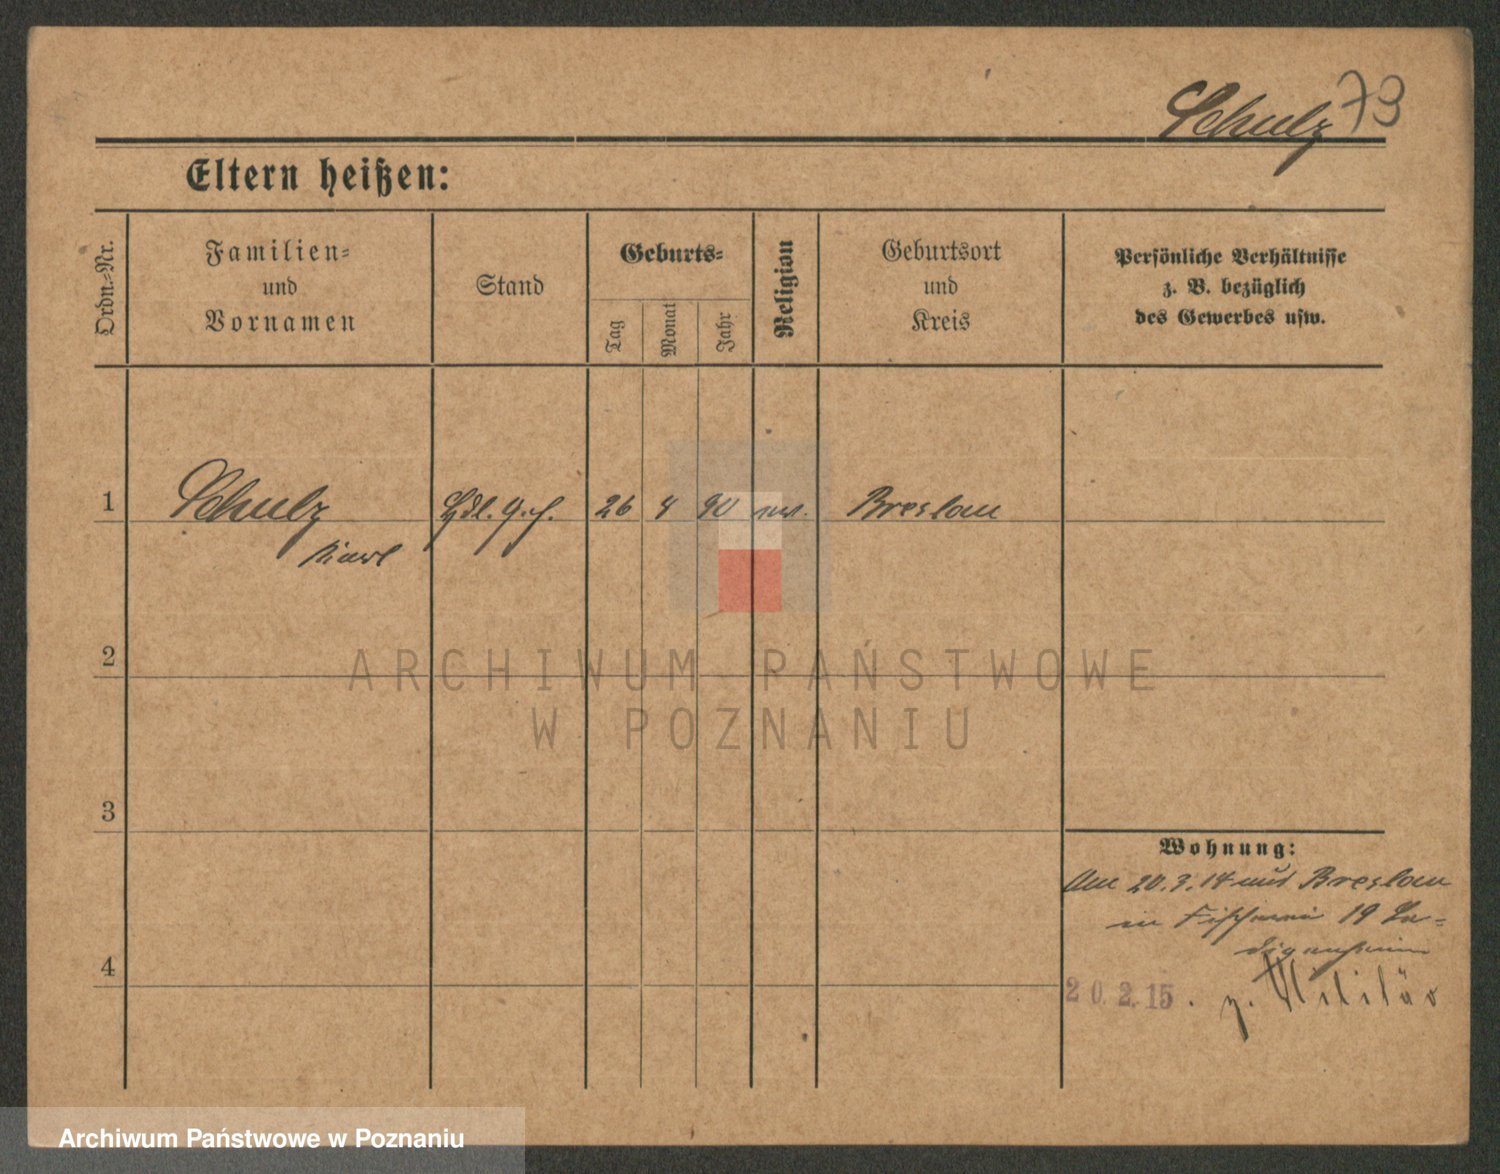 Schulz 73
Eltern heißen:
Ordn.-Nr.
Familien-
und
Vornamen
Stand
Geburts-
Tag
Monat
Jahr
Religion
Geburtsort
und
Kreis
Persönliche Verhältnisse
z. B. bezüglich
des Gewerbes usw.
1
Schulz
Karl
Hdl. G.
26
4
90
ev.
Breslau
2
3
4
Wohnung:
Am 20.3.14 aus Breslau
in Fischerei 19 Le-
digenheim
20.2.15. z. Militär
ARCHIWUM PAŃSTWOWE
W POZNANIU
Archiwum Państwowe w Poznaniu